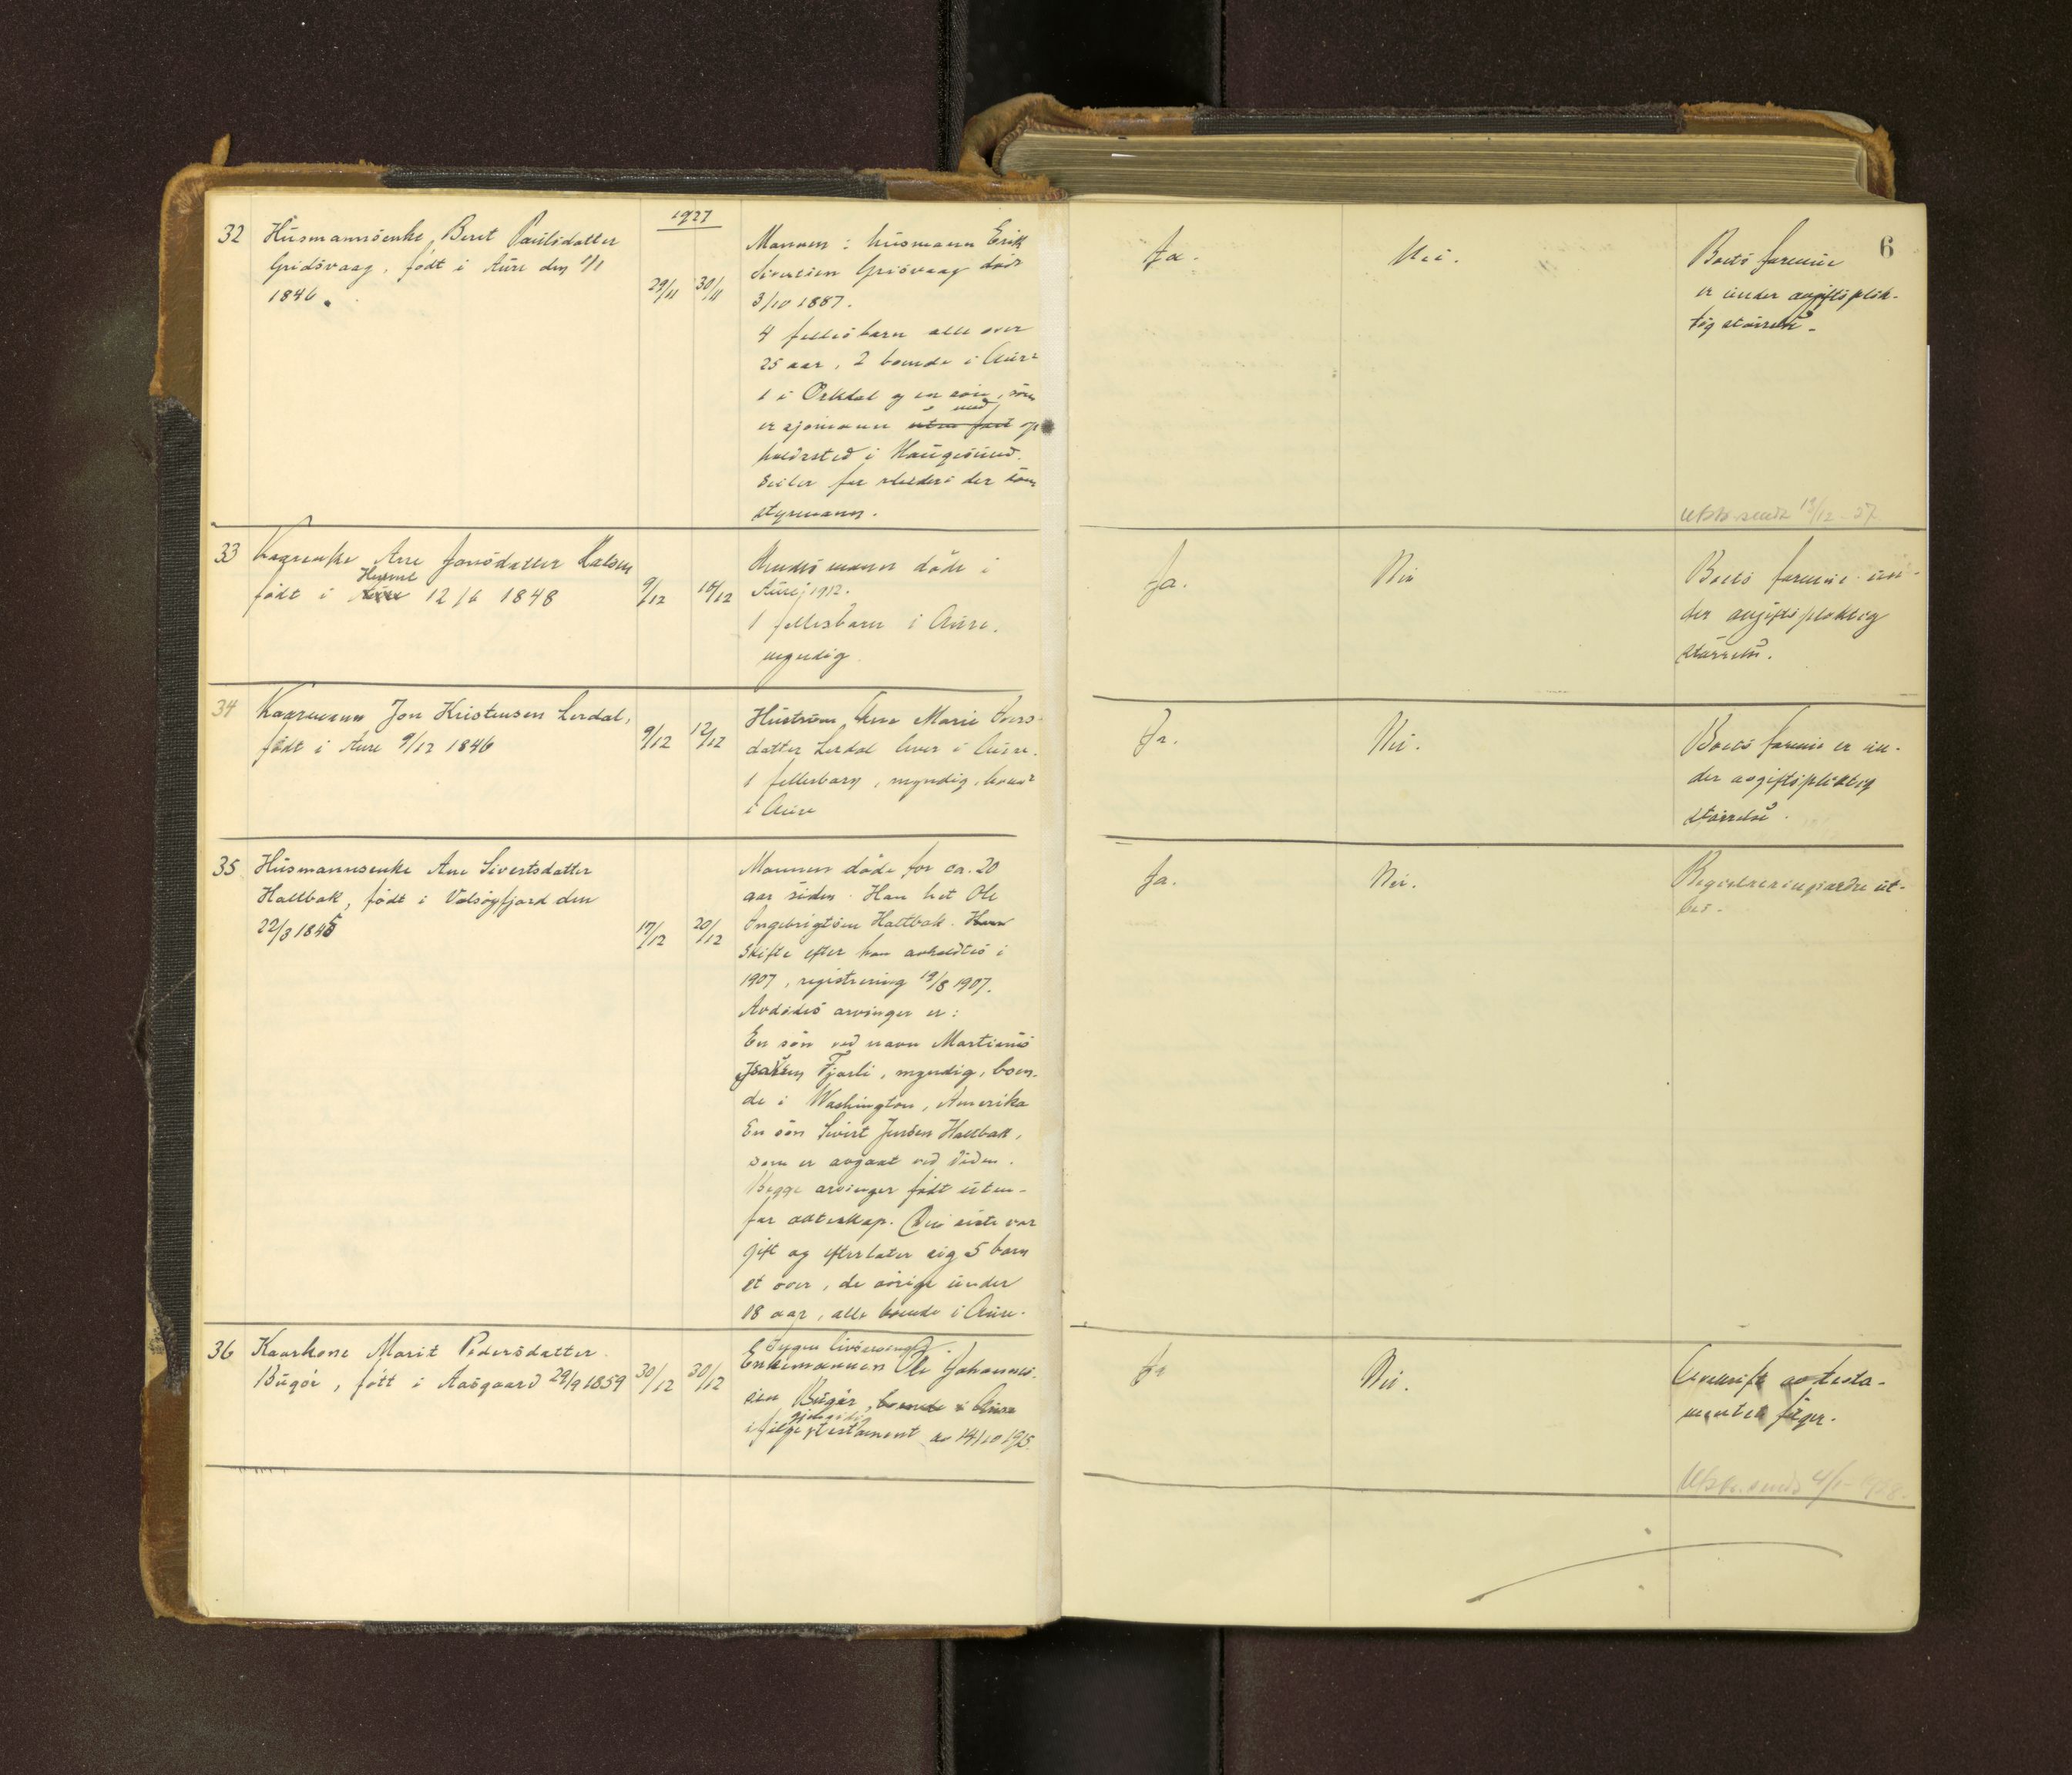 6
1927
32 Husmannsenke Beret Paulsdatter
Grisvaag, født i Aure den 1/1
1846.
29/11 30/11
Mannen: husmann Erik
Sivertsen Grisvaag døde
3/10 1887.
4 fellesbarn alle over
25 aar, 2 boende i Aure
1 i Orkdal og en søn, som
er sjømann med op
holdssted i Haugesund.
Seiler for rhederi der som
styrmann.
Ja.
Nei.
Boets formue
er under avgiftsplik-
tig størrelse.
utskr. sendt 13/12 - 27
33 Kaarenke Ane Jonsdatter
født i Hevne 12/6 1848
9/12 10/12
Hendes mann døde i
Aure i 1912.
1 fellesbarn i Aure,
myndig.
Ja.
Nei
Boets formue un-
der avgiftspliktig
størrelse.
34 Kaarmann Jon Kristensen Lerdal,
født i Aure 9/12 1846
9/12 12/12
Hustruen Ane Marie Ivers-
datter Lerdal lever i Aure.
1 fellesbarn, myndig, boende
i Aure
Ja.
Nei.
Boets formue er un-
der avgiftspliktig
størrelse.
35 Husmannsenke Ane Sivertsdatter
Haltbak, født i Valsøyfjord den
22/3 1845
17/12 20/12
Mannen døde for ca. 20
aar siden. Han het Ole
Ingebrigtsen Haltbak. Han
Skifte efter han avholdtes i
1907, registrering 19/8 1907.
Avdødes arvinger er:
En søn ved navn Martinus
Fjærli, myndig, boen-
de i Washington, Amerika
En søn Sivert Jensen Haltbak,
som er avgaat ved døden.
Begge arvinger født uten-
for ekteskap. Den siste var
gift og efterlater sig 5 barn
et over, de øvrige under
18 aar, alle boende i Aure.
Ja.
Nei.
Registreringsordre ut-
36 Kaarkone Marit Pedersdatter
Bugør, født i Aasgaard 29/9 1859
30/12 30/12
Ingen livsarvinger
Enkemannen Ole Johannes-
sen Bugør, boende i Aure
ifølge gjensidig testament av 14/10 1915
Ja
Nei.
Avskrift av testa-
mentet følger.
Utskr. sendt 4/1 - 1928.